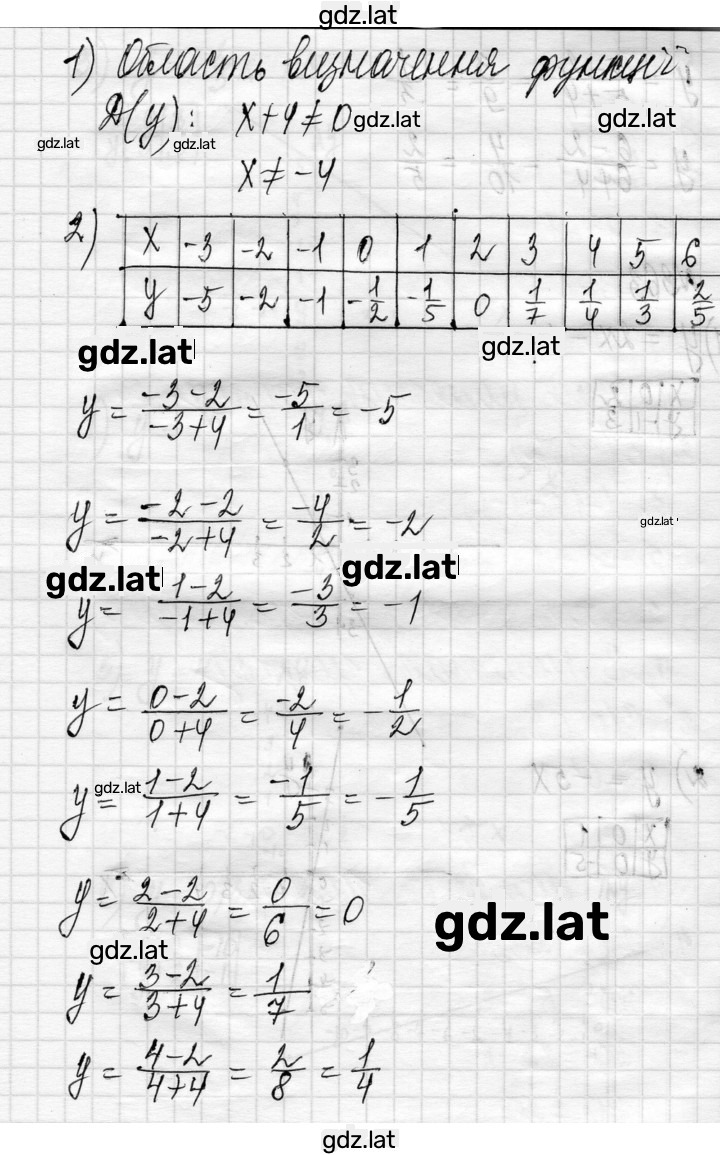 gdz.lat
1) Область визначення функції
D(y): x+4≠0 gdz.lat gdz.lat
gdz.lat gdz.lat
x≠-4
2) x -3 -2 -1 0 1 2 3 4 5 6
y -5 -2 -1 -1/2 -1/5 0 1/7 1/4 1/3 2/5
gdz.lat gdz.lat
y = (-3-2)/(-3+4) = -5/1 = -5
y = (-2-2)/(-2+4) = -4/2 = -2
gdz.lat
gdz.lat gdz.lat
y = (1-2)/(-1+4) = -3/3 = -1
y = (0-2)/(0+4) = -2/4 = -1/2
gdz.lat
y = (1-2)/(1+4) = -1/5 = -1/5
y = (2-2)/(2+4) = 0/6 = 0
gdz.lat
gdz.lat
y = (3-2)/(3+4) = 1/7
y = (4-2)/(4+4) = 2/8 = 1/4
gdz.lat